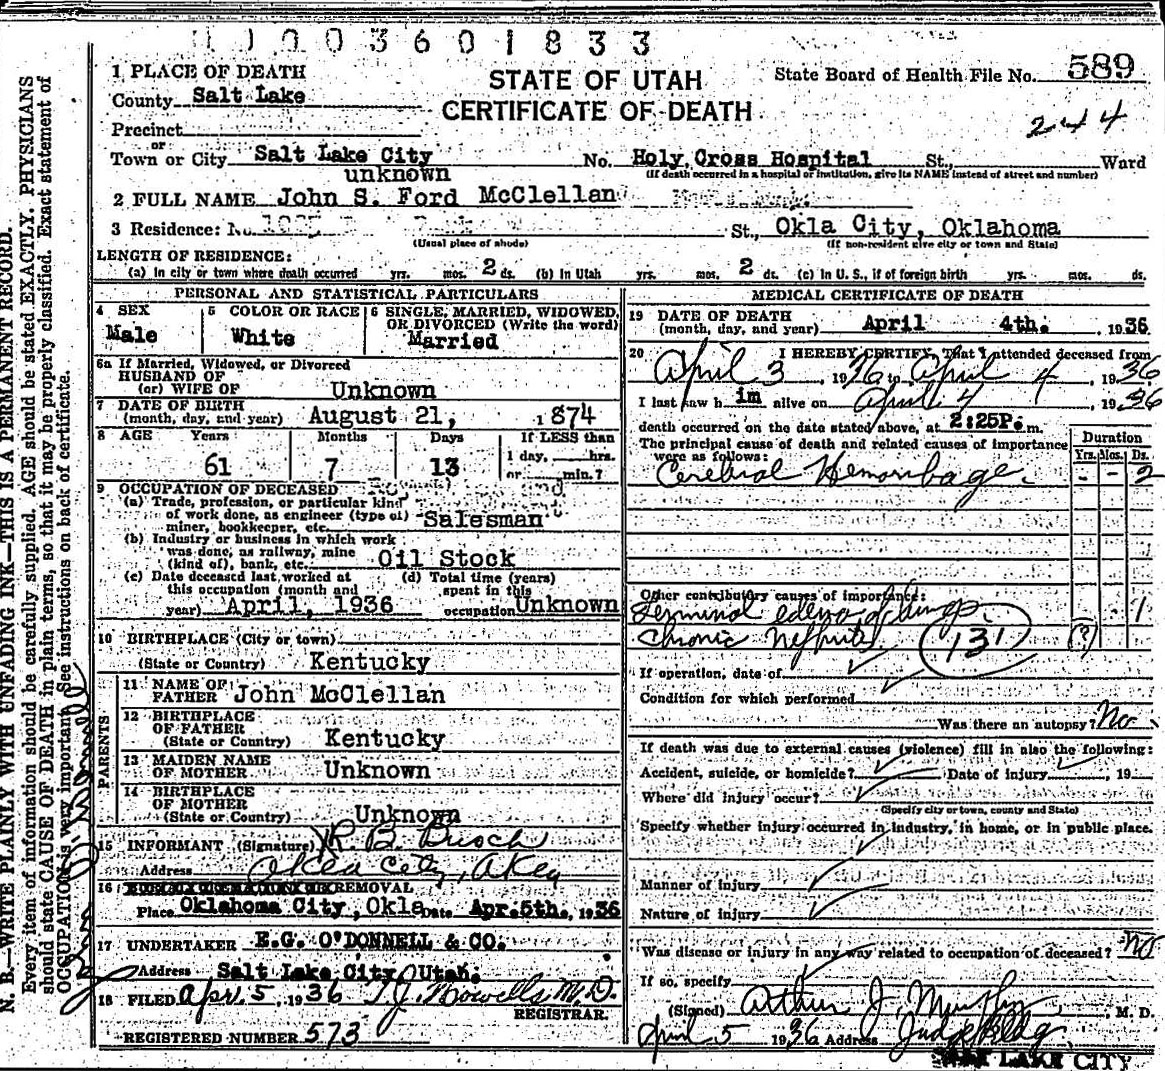 11003601833
1 PLACE OF DEATH
STATE OF UTAH
State Board of Health File No. 589
County Salt Lake
CERTIFICATE OF DEATH
244
Precinct
or
Town or City Salt Lake City No. Holy Cross Hospital St., Ward
(If death occurred in a hospital or institution, give its NAME instead of street and number)
unknown
2 FULL NAME John S. Ford McClellan
3 Residence: No. St., Okla City, Oklahoma
(Usual place of abode) (If non-resident give city or town and State)
LENGTH OF RESIDENCE:
(a) In city or town where death occurred yrs. mos. 2 ds. (b) In Utah yrs. mos. 2 ds. (c) In U. S., if of foreign birth yrs. mos. ds.
PERSONAL AND STATISTICAL PARTICULARS
4 SEX 5 COLOR OR RACE 6 SINGLE, MARRIED, WIDOWED,
OR DIVORCED (Write the word)
Male White Married
6a If Married, Widowed, or Divorced
HUSBAND OF
(or) WIFE OF Unknown
7 DATE OF BIRTH
(month, day, and year) August 21, 1874
8 AGE Years Months Days If LESS than
1 day, hrs.
61 7 13 or min.?
9 OCCUPATION OF DECEASED
(a) Trade, profession, or particular kind
of work done, as engineer (type of)
miner, bookkeeper, etc. Salesman
(b) Industry or business in which work
was done, as railway, mine
(kind of), bank, etc. Oil Stock
(c) Date deceased last worked at (d) Total time (years)
this occupation (month and spent in this
year) April, 1936 occupation Unknown
10 BIRTHPLACE (City or town)
(State or Country) Kentucky
PARENTS
11 NAME OF
FATHER John McClellan
12 BIRTHPLACE
OF FATHER
(State or Country) Kentucky
13 MAIDEN NAME
OF MOTHER Unknown
14 BIRTHPLACE
OF MOTHER
(State or Country) Unknown
15 INFORMANT (Signature) R. B.
Address Okla City, Okla
16 REMOVAL
Place Oklahoma City, Okla Date Apr. 5th. , 1936
17 UNDERTAKER E.G. O'DONNELL & CO.
Address Salt Lake City, Utah.
18 FILED Apr. 5, 1936 T. J. Howells M.D.
REGISTRAR.
REGISTERED NUMBER 573
MEDICAL CERTIFICATE OF DEATH
19 DATE OF DEATH
(month, day, and year) April 4th. , 1936
20 I HEREBY CERTIFY, That I attended deceased from
April 3, 1936 to April 4, 1936
I last saw him alive on April 4, 1936
death occurred on the date stated above, at 2:25P. m.
The principal cause of death and related causes of importance
were as follows:
Duration
Yrs. Mos. Ds.
Cerebral Hemorrhage. - - 2
Other contributory causes of importance:
Terminal edema of lungs. 1
Chronic Nephritis 131 (?)
If operation, date of
Condition for which performed
Was there an autopsy? No
If death was due to external causes (violence) fill in also the following:
Accident, suicide, or homicide? Date of injury , 19
Where did injury occur?
(Specify city or town, county and State)
Specify whether injury occurred in industry, in home, or in public place.
Manner of injury
Nature of injury
Was disease or injury in any way related to occupation of deceased? No
If so, specify
(Signed) Arthur J Murphy M. D.
April 5 1936 Address Judge Bldg
LAKE CITY
N. B.—WRITE PLAINLY WITH UNFADING INK—THIS IS A PERMANENT RECORD.
Every item of information should be carefully supplied. AGE should be stated EXACTLY. PHYSICIANS
should state CAUSE OF DEATH in plain terms, so that it may be properly classified. Exact statement of
OCCUPATION is very important. See instructions on back of certificate.